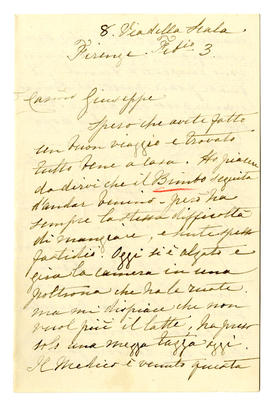 8. Via della Scala
Firenze. Feb. 3.
Carmo Giuseppe
Spero che avete fatto
un buon viaggio e trovato
tutto bene a casa. Ho piacere
da dirvi che il Bimbo seguita
d'andar benino - però ha
sempre la stessa difficoltà
di mangiare, e sente spesso
fastidio. Oggi si è alzato e
gira la camera in una
poltrona che ha le ruote.
ma mi dispiace che non
vuol più il latte, ha preso
solo una mezza tazza oggi.
Il Medico è venuto questa